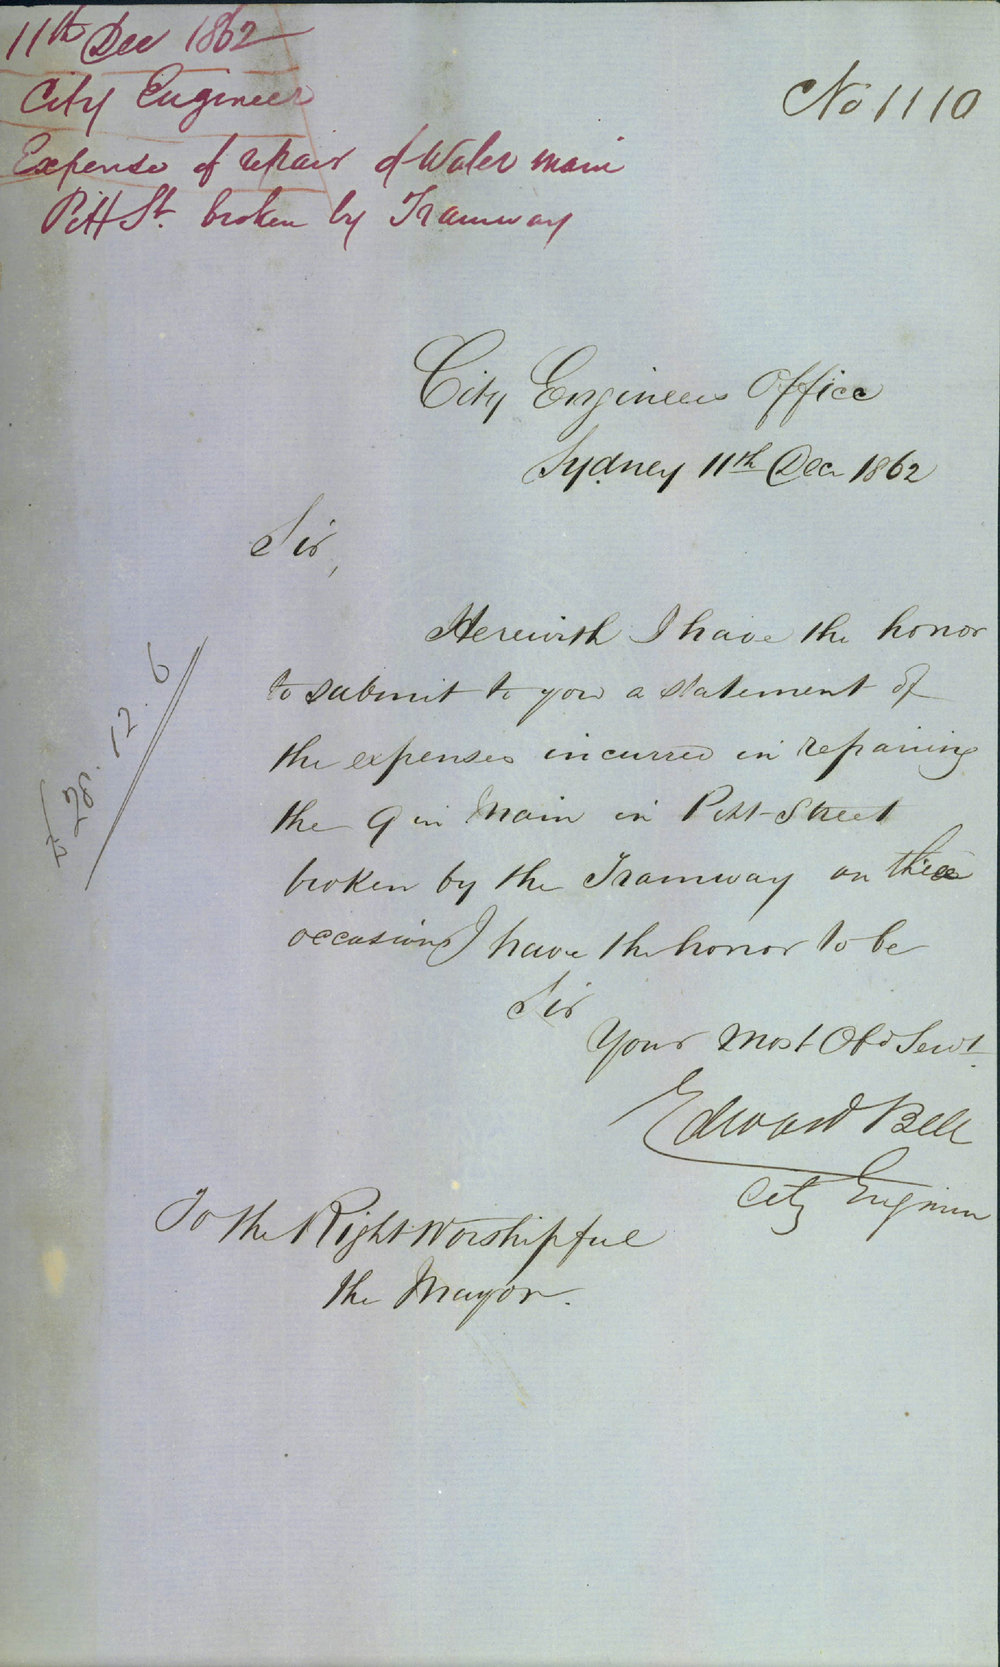 11th Dec 1862
City Engineer
Expense of repair of Water main
Pitt St. broken by Tramway
No 1110
City Engineers Office
Sydney 11th Dec 1862
Sir,
Herewith I have the honor
to submit to you a statement of
the expenses incurred in repairing
the 9 in Main in Pitt Street
broken by the Tramway on
occasions I have the honor to be
Sir
Your Most Obd Servt
Edward Bell
City Engineer
To the Right Worshipful
the Mayor.
£ 28.12.6